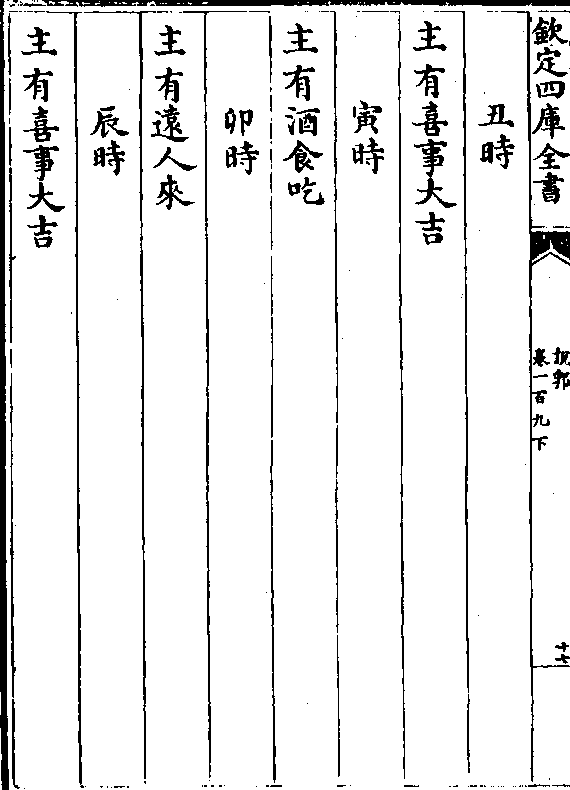 欽定四庫全書
說郛
卷一百九下
十七
丑時
主有喜事大吉
寅時
主有酒食吃
卯時
主有遠人來
辰時
主有喜事大吉